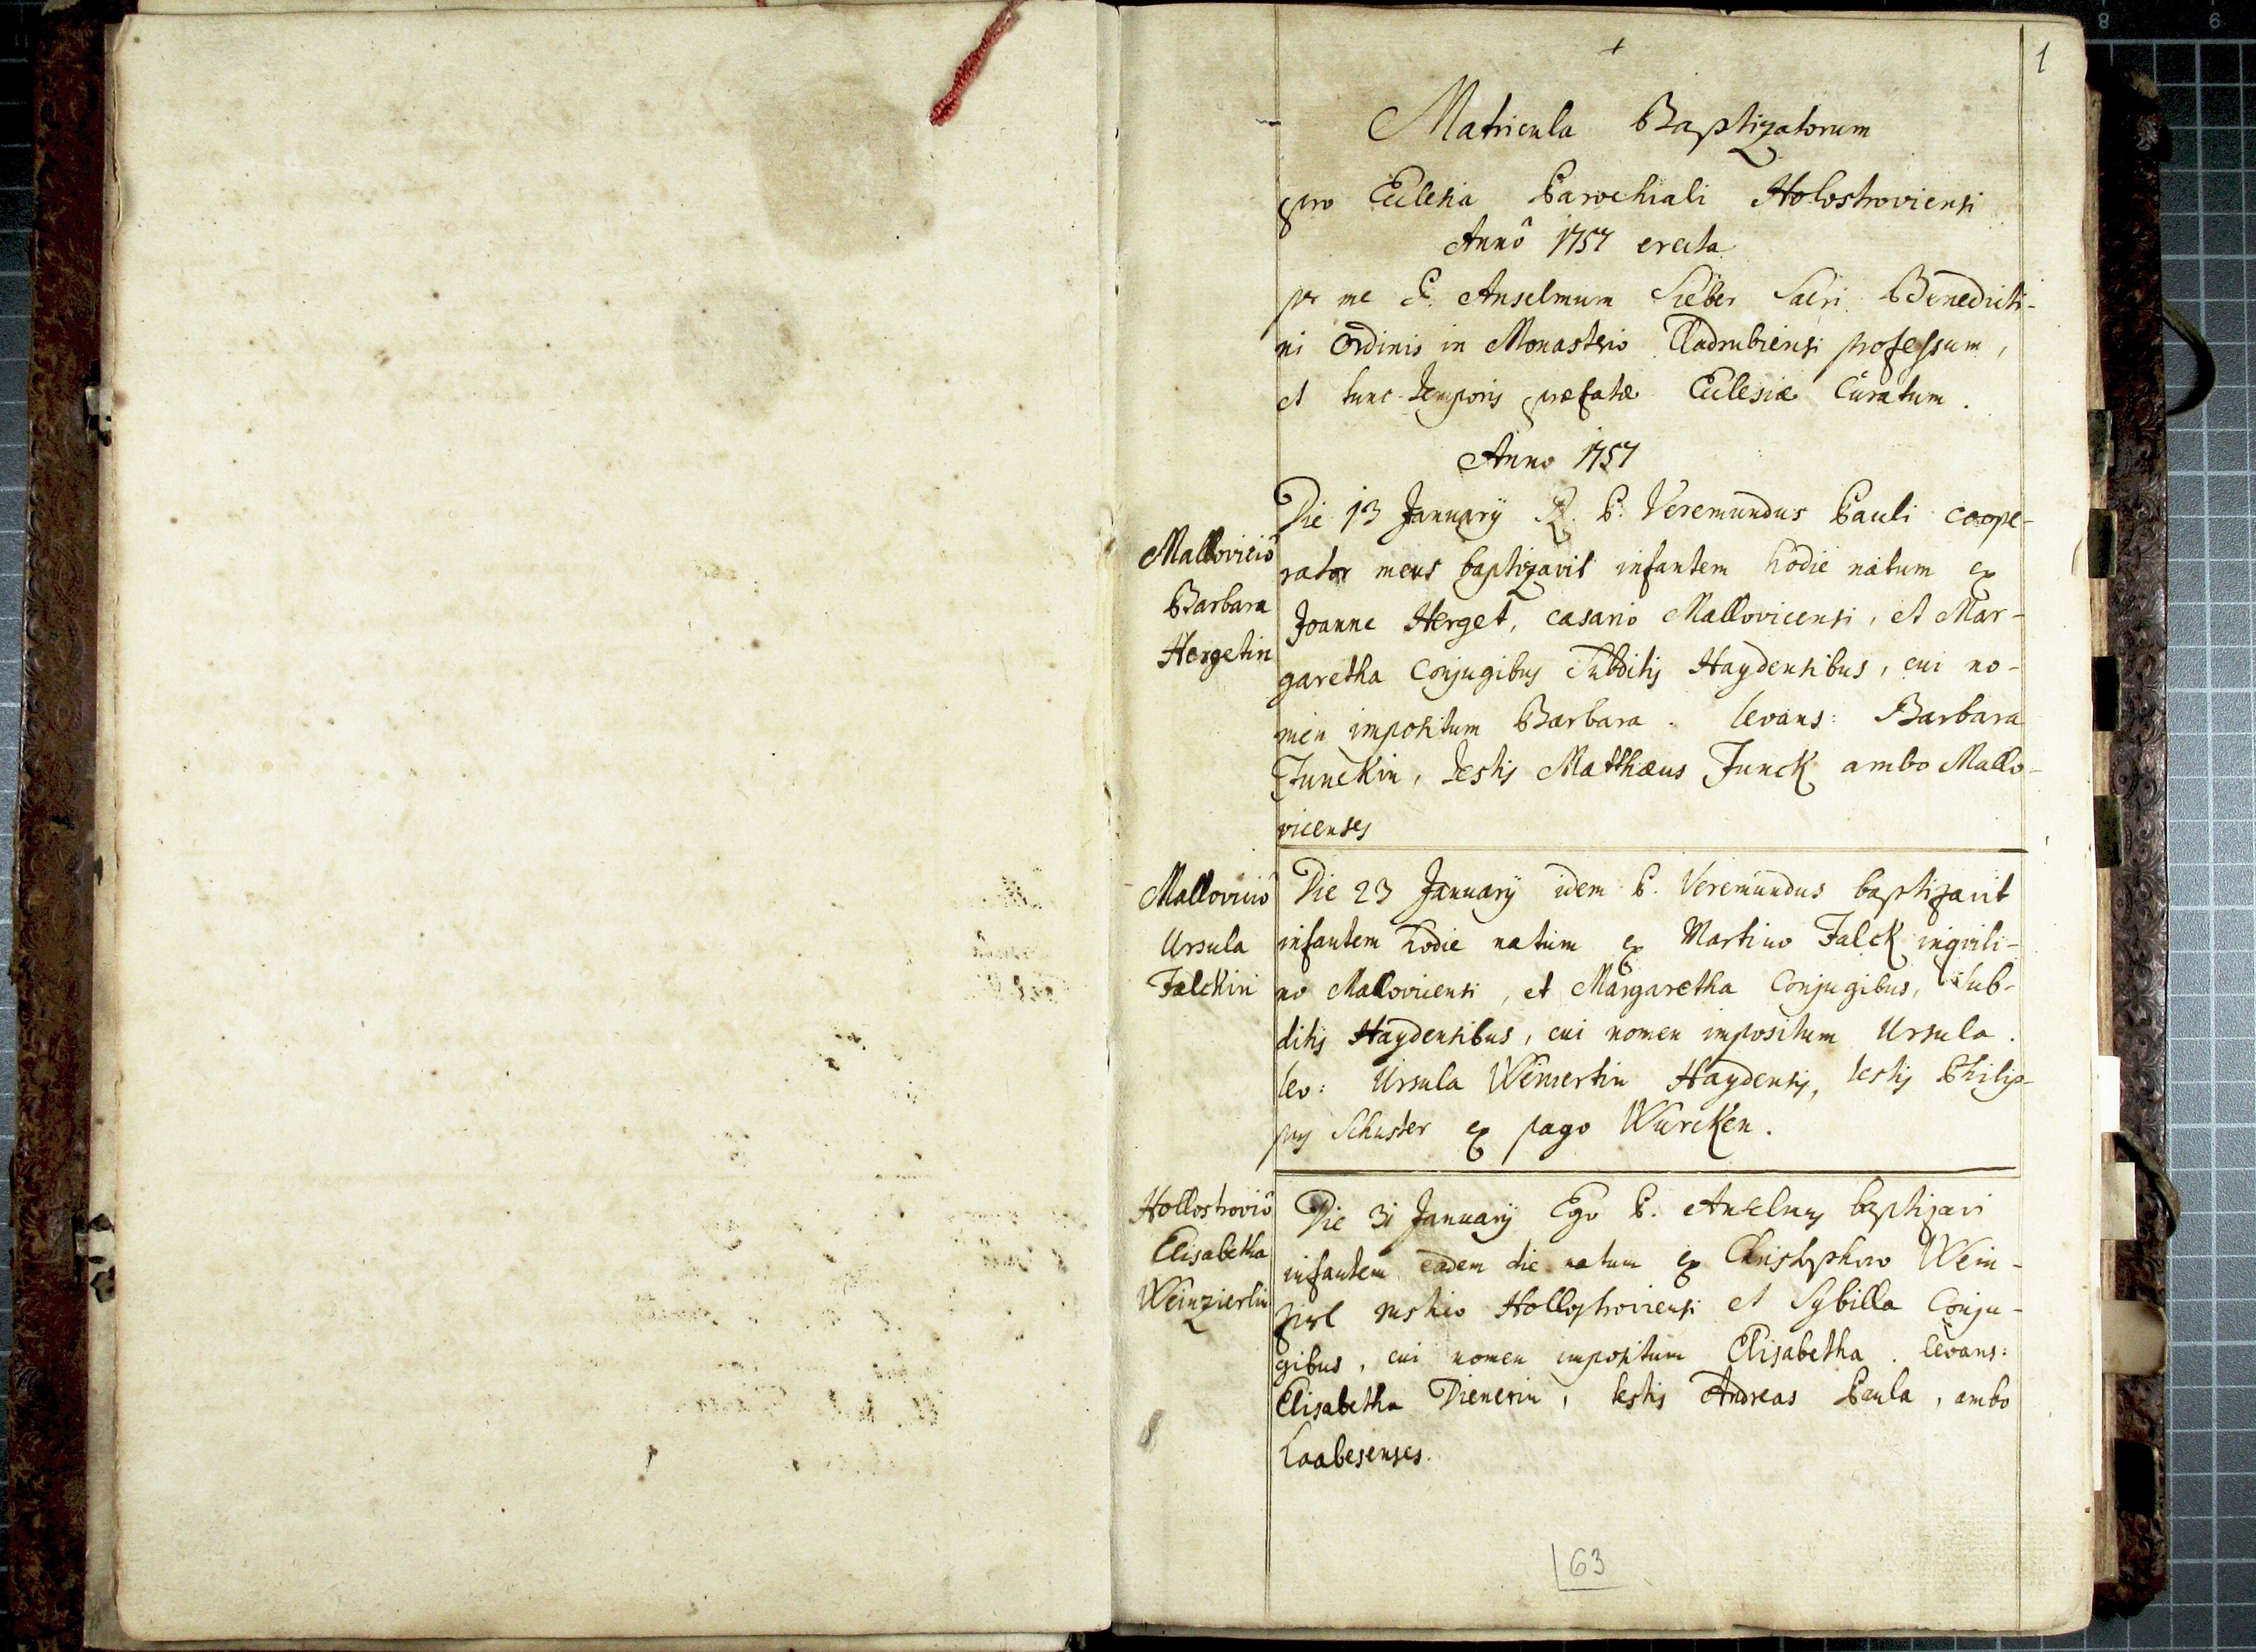 1
Matricula Baptizatorum
pro Ecclesia Parochiali Holostroviensi
Annô 1757 erecta
per me P. Anselmum Sieber Sacri Benedicti-
ni Ordinis in Monasterio Cladrubiensi professum,
et tunc temporis præfatæ Ecclesiæ Curatum.
Anno 1757
Mallovicio
Barbara
Hergetin
Die 13 Januarÿ R. P. Veremundus Pauli coope-
rator meus baptizavit infantem hodie natum ex
Joanne Herget, casario Mallovicensi, et Mar-
garetha Conjugibus Subditis Haydensibus, cui no-
men impositum Barbara. levans: Barbara
Junckin, testis Matthæus Junck ambo Mallo-
vicenses
Mallovicio
Ursula
Falckin
Die 23 Januarÿ idem P. Veremundus baptizavit
infantem hodie natum ex Martino Falck inquili-
no Mallovicensi, et Margaretha Conjugibus, Sub-
ditis Haydensibus, cui nomen impositum Ursula.
lev: Ursula Haydensis, testis Philip-
pus Schuster ex pago Wurcken.
Hollostroviô
Elisabetha
Weinzierlin
Die 31 Januarÿ Ego P. Anselmus baptizavi
infantem eadem die natum ex Christophoro Wein-
zirl rustico Hollostroviensi et Sybilla Conju-
gibus, cui nomen impositum Elisabetha. levans:
Elisabetha Dienerin, testis Andreas Paula, ambo
Laabesenses.
63